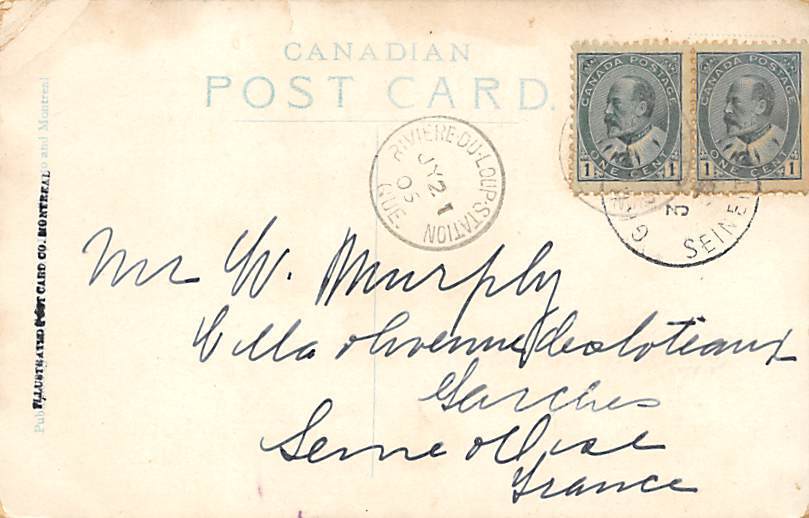 CANADIAN
POST CARD.
CANADA POSTAGE
1 ONE CENT 1
CANADA POSTAGE
1 ONE CENT 1
RIVIERE-DU-LOUP-STATION
JY 21
05
QUE.
SEINE
ILLUSTRATED POST CARD CO. MONTREAL
and Montreal
Mr W. Murphy
Villa
Garches
Seine et Oise
France